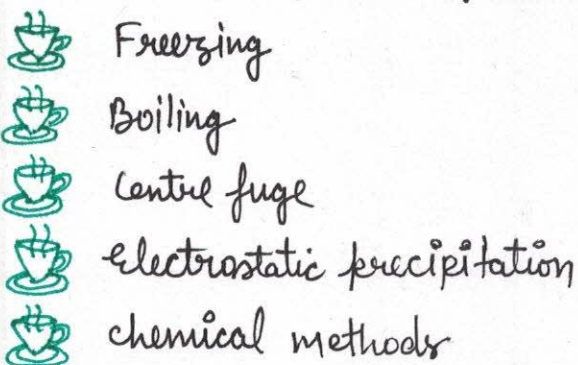 Freezing
Boiling
Centre fuge
Electrostatic precipitation
chemical methods